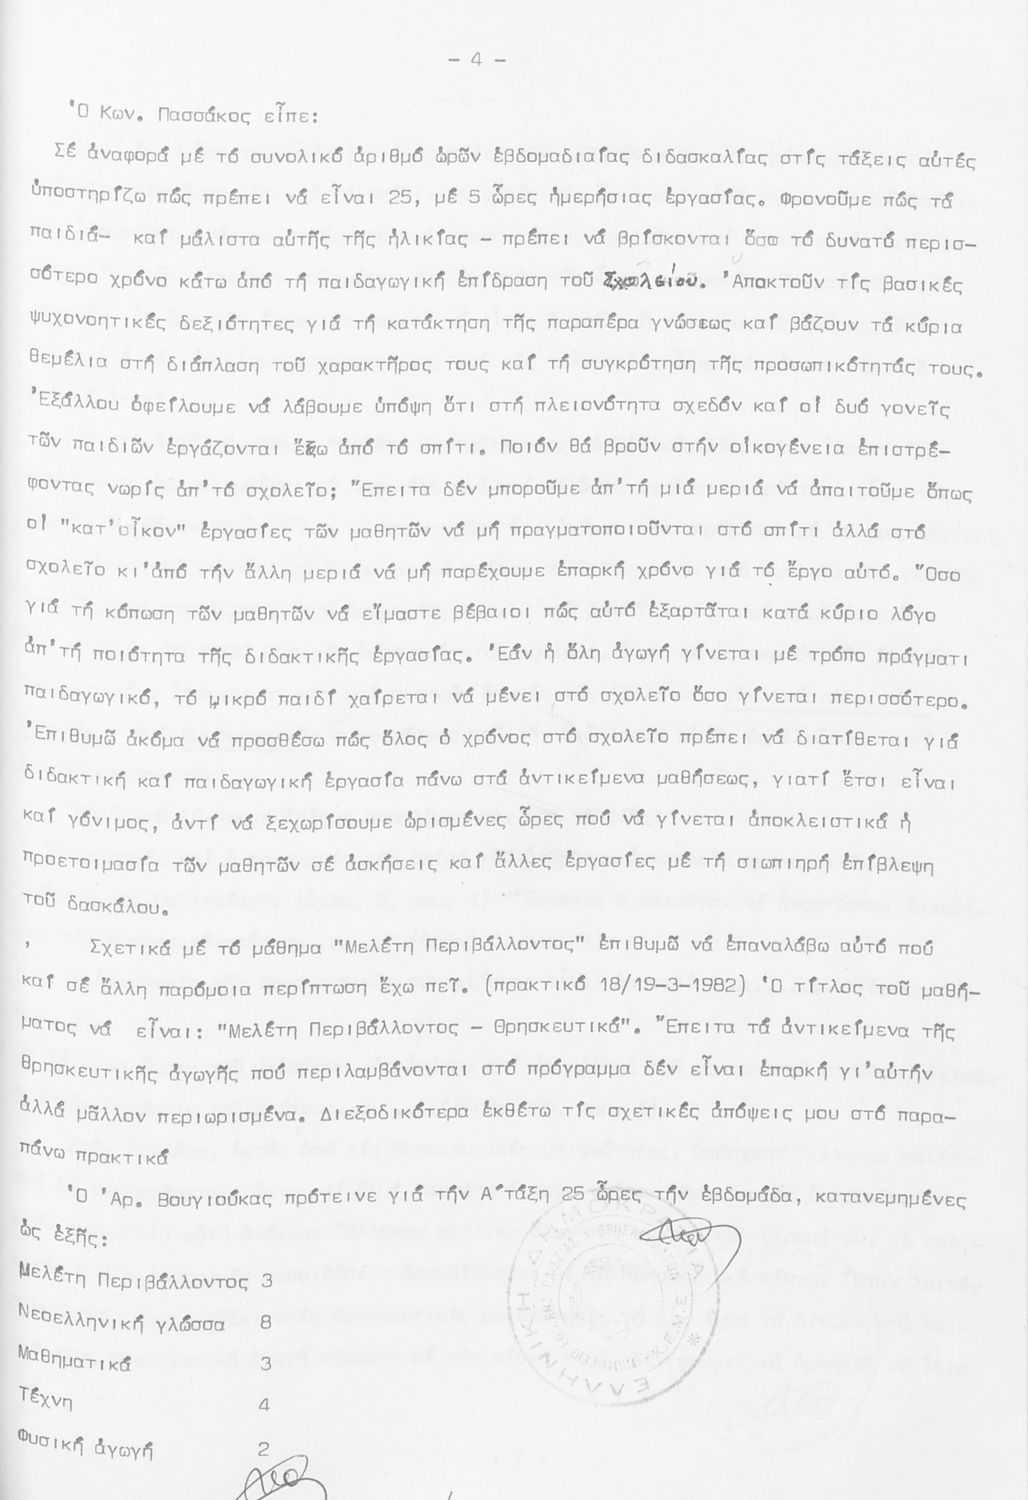 - 4 -
Ὁ Κων. Πασσάκος εἶπε:
Σέ ἀναφορά μέ τό συνολικό ἀριθμό ὡρῶν ἑβδομαδιαίας διδασκαλίας στίς τάξεις αὐτές
ὑποστηρίζω πώς πρέπει νά εἶναι 25, μέ 5 ὧρες ἡμερήσιας ἐργασίας. Φρονοῦμε πώς τά
παιδιά- καί μάλιστα αὐτῆς τῆς ἡλικίας - πρέπει νά βρίσκονται ὅσο τό δυνατό περισ-
σότερο χρόνο κάτω ἀπό τή παιδαγωγική ἐπίδραση τοῦ Σχολείου. Ἀποκτοῦν τίς βασικές
ψυχονοητικές δεξιότητες γιά τή κατάκτηση τῆς παραπέρα γνώσεως καί βάζουν τά κύρια
θεμέλια στή διάπλαση τοῦ χαρακτήρος τους καί τή συγκρότηση τῆς προσωπικότητάς τους.
Ἐξάλλου ὀφείλουμε νά λάβουμε ὑπόψη ὅτι στή πλειονότητα σχεδόν καί οἱ δυό γονεῖς
τῶν παιδιῶν ἐργάζονται ἔξω ἀπό τό σπίτι. Ποιόν θά βροῦν στήν οἰκογένεια ἐπιστρέ-
φοντας νωρίς ἀπ'τό σχολεῖο; Ἔπειτα δέν μποροῦμε ἀπ'τή μιά μεριά νά ἀπαιτοῦμε ὅπως
οἱ "κατ'οἶκον" ἐργασίες τῶν μαθητῶν νά μή πραγματοποιοῦνται στό σπίτι ἀλλά στό
σχολεῖο κι'ἀπό τήν ἄλλη μεριά νά μή παρέχουμε ἐπαρκή χρόνο γιά τό ἔργο αὐτό. Ὅσο
γιά τή κόπωση τῶν μαθητῶν νά εἴμαστε βέβαιοι πώς αὐτό ἐξαρτᾶται κατά κύριο λόγο
ἀπ'τή ποιότητα τῆς διδακτικῆς ἐργασίας. Ἐάν ἡ ὅλη ἀγωγή γίνεται μέ τρόπο πράγματι
παιδαγωγικό, τό μικρό παιδί χαίρεται νά μένει στό σχολεῖο ὅσο γίνεται περισσότερο.
Ἐπιθυμῶ ἀκόμα νά προσθέσω πώς ὅλος ὁ χρόνος στό σχολεῖο πρέπει νά διατίθεται γιά
διδακτική καί παιδαγωγική ἐργασία πάνω στά ἀντικείμενα μαθήσεως, γιατί ἔτσι εἶναι
καί γόνιμος, ἀντί νά ξεχωρίσουμε ὡρισμένες ὧρες πού νά γίνεται ἀποκλειστικά ἡ
προετοιμασία τῶν μαθητῶν σέ ἀσκήσεις καί ἄλλες ἐργασίες μέ τή σιωπηρή ἐπίβλεψη
τοῦ δασκάλου.
Σχετικά μέ τό μάθημα "Μελέτη Περιβάλλοντος" ἐπιθυμῶ νά ἐπαναλάβω αὐτό πού
καί σέ ἄλλη παρόμοια περίπτωση ἔχω πεῖ. (πρακτικό 18/19-3-1982) Ὁ τίτλος τοῦ μαθή-
ματος νά εἶναι: "Μελέτη Περιβάλλοντος - Θρησκευτικά". Ἔπειτα τά ἀντικείμενα τῆς
θρησκευτικῆς ἀγωγῆς πού περιλαμβάνονται στό πρόγραμμα δέν εἶναι ἐπαρκή γι'αὐτήν
ἀλλά μᾶλλον περιωρισμένα. Διεξοδικότερα ἐκθέτω τίς σχετικές ἀπόψεις μου στό παρα-
πάνω πρακτικά
Ὁ Ἀρ. Βουγιούκας πρότεινε γιά τήν Α'τάξη 25 ὧρες τήν ἑβδομάδα, κατανεμημένες
ὡς ἑξῆς:
Μελέτη Περιβάλλοντος 3
Νεοελληνική γλώσσα 8
Μαθηματικά 3
Τέχνη 4
Φυσική ἀγωγή 2
ΕΛΛΗΝΙΚΗ ΔΗΜΟΚΡΑΤΙΑ